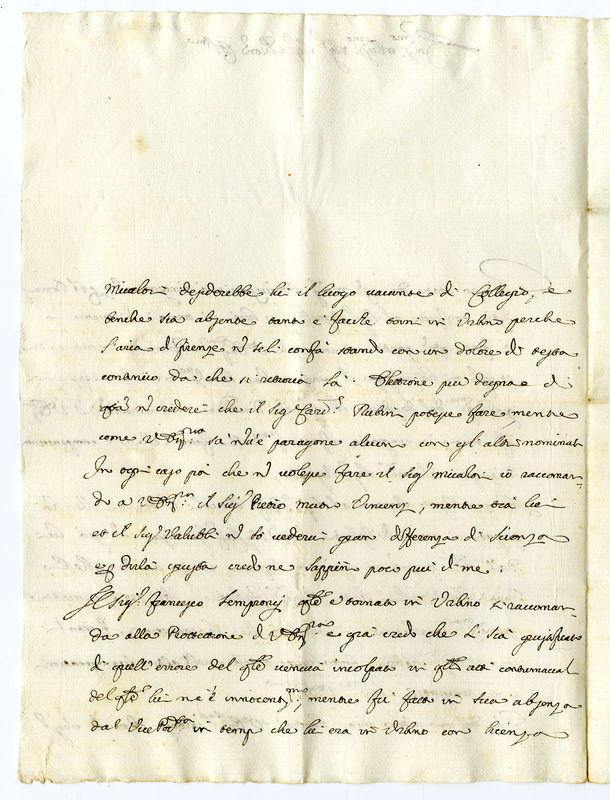 Micalori desiderebbe lui il luogo vacante di Collegio, e
benche sia absente tanto è facile torni in Urbino perche
l'aria di Firenze nõ se li confà stando con un dolore di testa
continuo da che si ritrova là. Elettione più degna e di
q̃sta nõ crederei che il sig.r Card.l Rubini potesse fare mentre
come V. Ill.ma sa nõ v'è paragone alcun con gl'altri nominati
In ogni caso poi che nõ volesse fare il sig.r Micalori io raccoman-
do a V. Ill.ma il sig.r Pietro Vincenzi, mentre trà lui
et il sig.r Valubbi nõ sò vedervi gran differenza di scienza
e p dirla giusta credo ne sappin poco più di me.
Il Sig.r Francesco Sempronij q̃le è tornato in Urbino si raccoman-
da alla Protettione di V. Ill.ma e già credo che si sia giustificato
di quell'errore del q̃le veniva incolpato in q̃li atti contumaciali
del q̃le lui ne è innocent.mo, mentre fù fatto in sua absenza
dal Vice in temp che lui era in Urbino con licenza